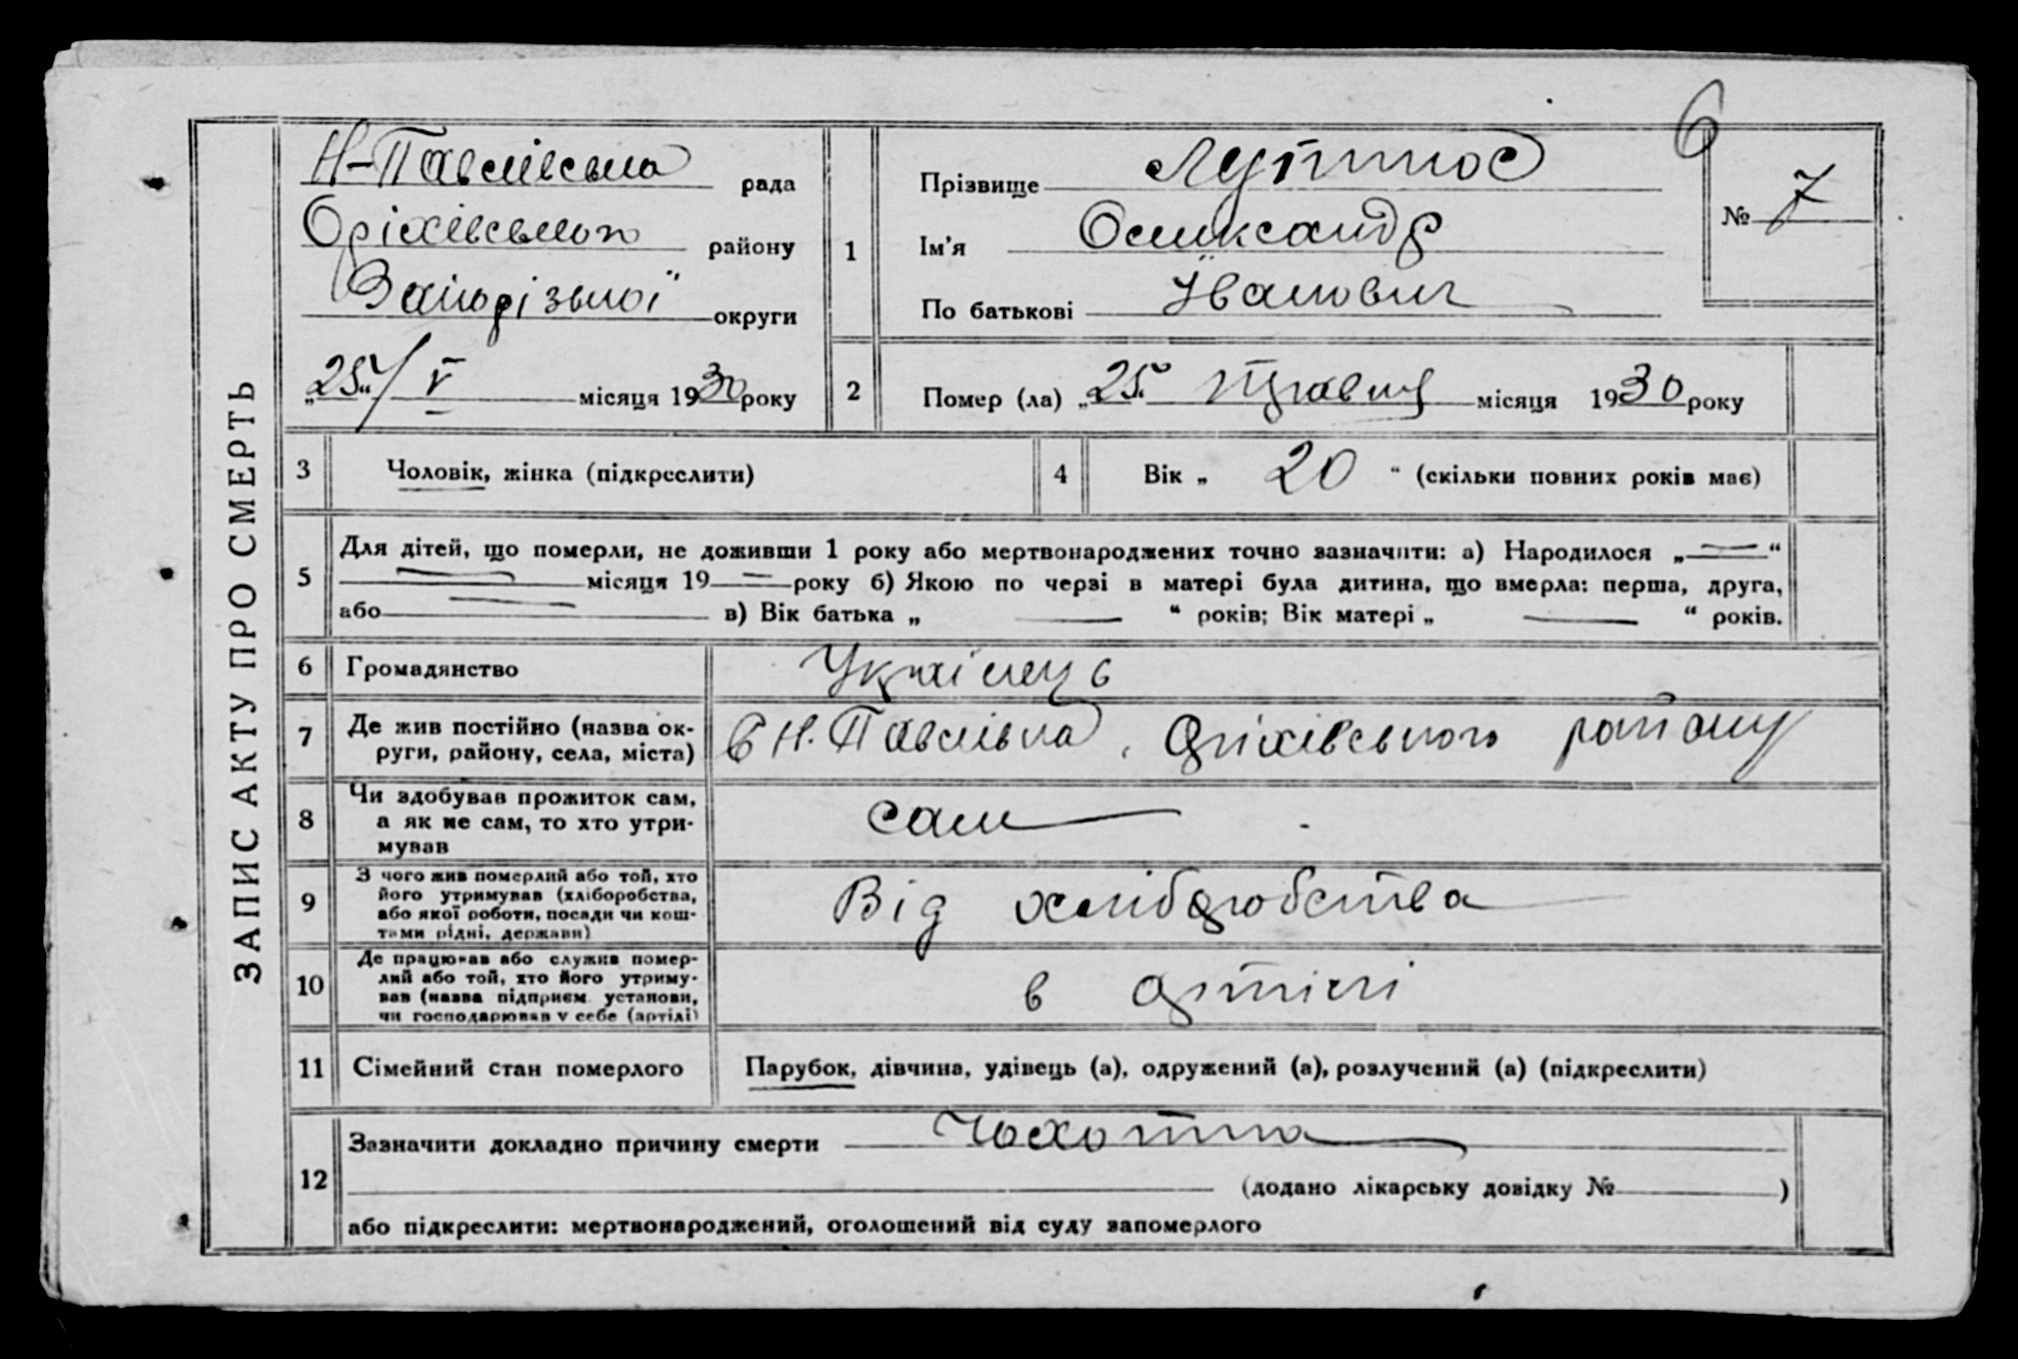 6
ЗАПИС АКТУ ПРО СМЕРТЬ
Н-Павлівська рада
Оріхівського району
Запорізької округи
„25“/V місяця 1930 року
1
Прізвище
Ім'я Олександр
По батькові Іванович
№ 7
2 Помер (ла) „25“ травня місяця 1930 року
3 Чоловік, жінка (підкреслити)
4 Вік „ 20 “ (скільки повних років має)
5 Для дітей, що померли, не доживши 1 року або мертвонароджених точно зазначити: а) Народилося „—“
— місяця 19 — року б) Якою по черзі в матері була дитина, що вмерла: перша, друга,
або — в) Вік батька „ — “ років; Вік матері „ — “ років.
6 Громадянство Українець
7 Де жив постійно (назва ок-
руги, району, села, міста) с Н. Павлівка, Оріхівського району
8 Чи здобував прожиток сам,
а як не сам, то хто утри-
мував сам
9 З чого жив померлий або той, хто
його утримував (хліборобства,
або якої роботи, посади чи кош-
тами рідні, держави) Від хліборобства
10 Де працював або служив помер-
лий або той, хто його утриму-
вав (назва підприєм. установи,
чи господарював у себе (артілі) в артілі
11 Сімейний стан померлого Парубок, дівчина, удівець (а), одружений (а), розлучений (а) (підкреслити)
12 Зазначити докладно причину смерти Чохотка
(додано лікарську довідку № )
або підкреслити: мертвонароджений, оголошений від суду запомерлого